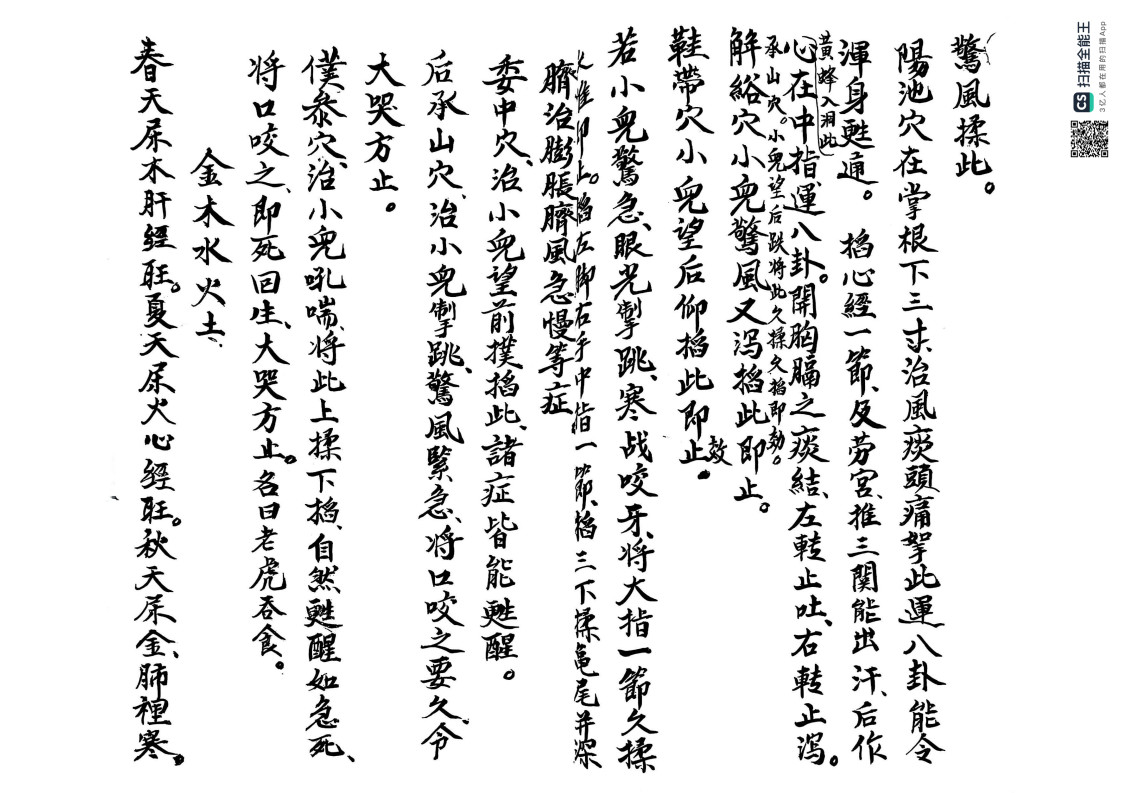 驚風揉此。
陽池穴在掌根下三寸治風痰頭痛拏此運八卦能令
渾身甦通。 掐心經一節、及勞宮、推三関能出汗、后作
黃蜂入洞此
心在中指運八卦。開胸膈之痰結、左轉止吐、右轉止瀉。
承山穴。小兒望后跌将此久揉久掐即効。
解谿穴小兒驚風又瀉掐此即止。
鞋帶穴小兒望后仰掐此即止。
效
若小兒驚急、眼光掣跳、寒战咬牙、将大指一節久揉
止。掐左脚右手中指一節、掐三下揉龟尾并深
臍治膨脹臍風急慢等症
委中穴、治小兒望前撲掐此、諸症皆能甦醒。
后承山穴、治小兒掣跳、驚風緊急、将口咬之要久、令
大哭方止。
僕参穴、治小兒吼喘、将此上揉下掐、自然甦醒如急死、
将口咬之、即死回生、大哭方止。名曰老虎吞食。
金木水火土
春天屎木肝經旺。夏天尿火心經旺。秋天屎金、肺裡寒。
CS 扫描全能王
3亿人都在用的扫描App